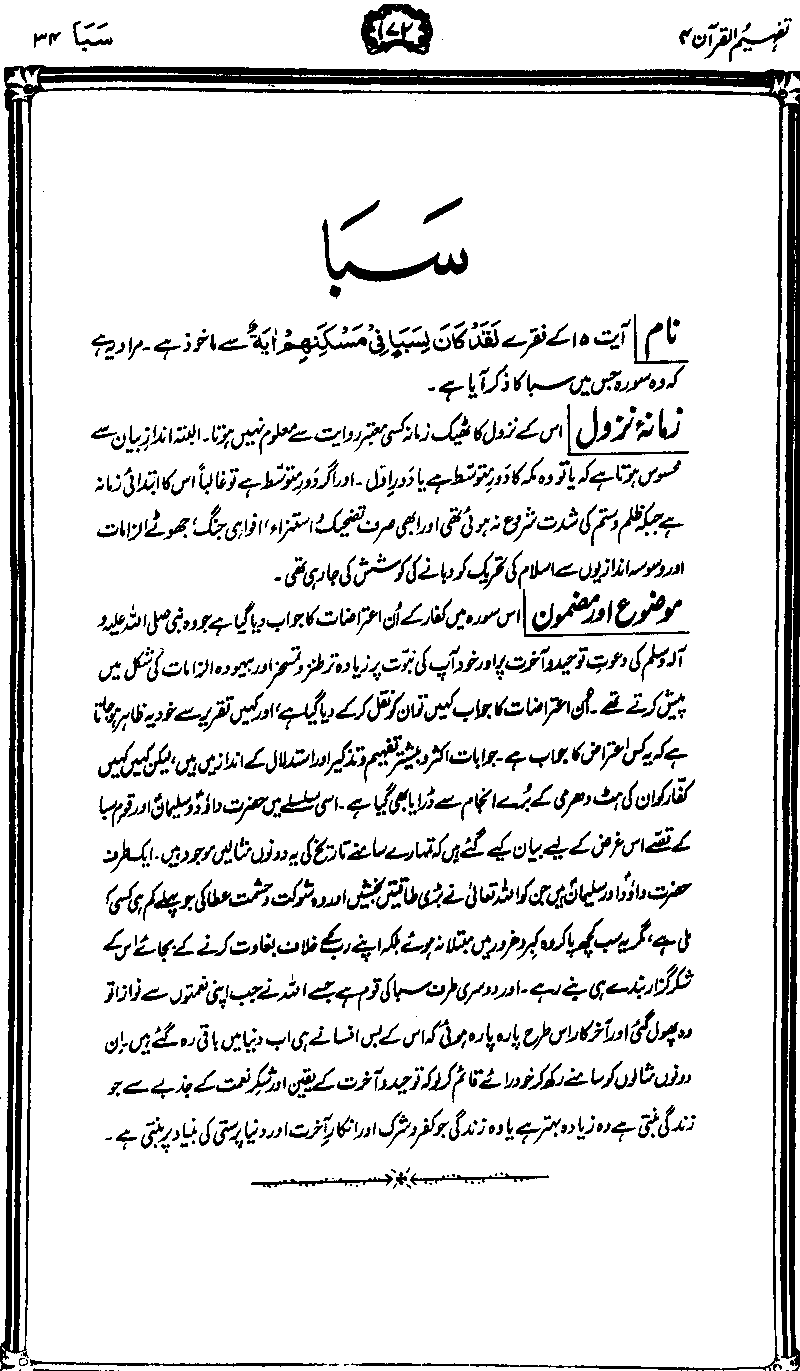 تفہیم القرآن ۴
۱۷۲
سَبَا ۳۴
سَبَا
نام آیت ۱۵ کے فقرے لَقَدْ كَانَ لِسَبَاٍ فِيْ مَسْكَنِهِمْ اٰيَةٌ سے ماخوذ ہے۔ مراد یہ ہے
کہ وہ سورہ جس میں سبا کا ذکر آیا ہے۔
زمانۂ نزول اس کے نزول کا ٹھیک زمانہ کسی معتبر روایت سے معلوم نہیں ہوتا۔ البتہ اندازِ بیان سے
محسوس ہوتا ہے کہ یا تو وہ مکہ کا دَورِ متوسط ہے یا دَورِ اوّل۔ اور اگر دَورِ متوسّط ہے تو غالباً اس کا ابتدائی زمانہ
ہے جبکہ ظلم و ستم کی شدت شروع نہ ہوئی تھی اور ابھی صرف تضحیک، استہزاء، افواہی جنگ، جھوٹے الزامات
اور وسوسہ اندازیوں سے اسلام کی تحریک کو دبانے کی کوشش کی جا رہی تھی۔
موضوع اور مضمون اس سورہ میں کفار کے اُن اعتراضات کا جواب دیا گیا ہے جو وہ نبی صلی اللہ علیہ و
آلہ وسلم کی دعوتِ توحید و آخرت پر اور خود آپ کی نبوّت پر زیادہ تر طنز و تمسخر اور بیہودہ الزامات کی شکل میں
پیش کرتے تھے۔ اُن اعتراضات کا جواب کہیں تو ان کو نقل کر کے دیا گیا ہے، اور کہیں تقریر سے خود یہ ظاہر ہو جاتا
ہے کہ یہ کس اعتراض کا جواب ہے۔ جوابات اکثر و بیشتر تفہیم و تذکیر اور استدلال کے انداز میں ہیں، لیکن کہیں کہیں
کفّار کو ان کی ہٹ دھرمی کے بُرے انجام سے ڈرایا بھی گیا ہے۔ اسی سلسلے میں حضرت داؤدؑ و سلیمانؑ اور قومِ سبا
کے قصّے اس غرض کے لیے بیان کیے گئے ہیں کہ تمہارے سامنے تاریخ کی یہ دونوں مثالیں موجود ہیں۔ ایک طرف
حضرت داؤدؑ اور سلیمانؑ ہیں جن کو اللہ تعالیٰ نے بڑی طاقتیں بخشیں اور وہ شوکت و حشمت عطا کی جو پہلے کم ہی کسی کو
ملی ہے، مگر یہ سب کچھ پا کر وہ کبر و غرور میں مبتلا نہ ہوئے بلکہ اپنے رب کے خلاف بغاوت کرنے کے بجائے اس کے
شکر گزار بندے ہی بنے رہے۔ اور دوسری طرف سبا کی قوم ہے جسے اللہ نے جب اپنی نعمتوں سے نوازا تو
وہ پھول گئی اور آخر کار اس طرح پارہ پارہ ہوئی کہ اس کے بس افسانے ہی اب دنیا میں باقی رہ گئے ہیں۔ اِن
دونوں مثالوں کو سامنے رکھ کر خود رائے قائم کر لو کہ توحید و آخرت کے یقین اور شکرِ نعمت کے جذبے سے جو
زندگی بنتی ہے وہ زیادہ بہتر ہے یا وہ زندگی جو کفر و شرک اور انکارِ آخرت اور دنیا پرستی کی بنیاد پر بنتی ہے۔